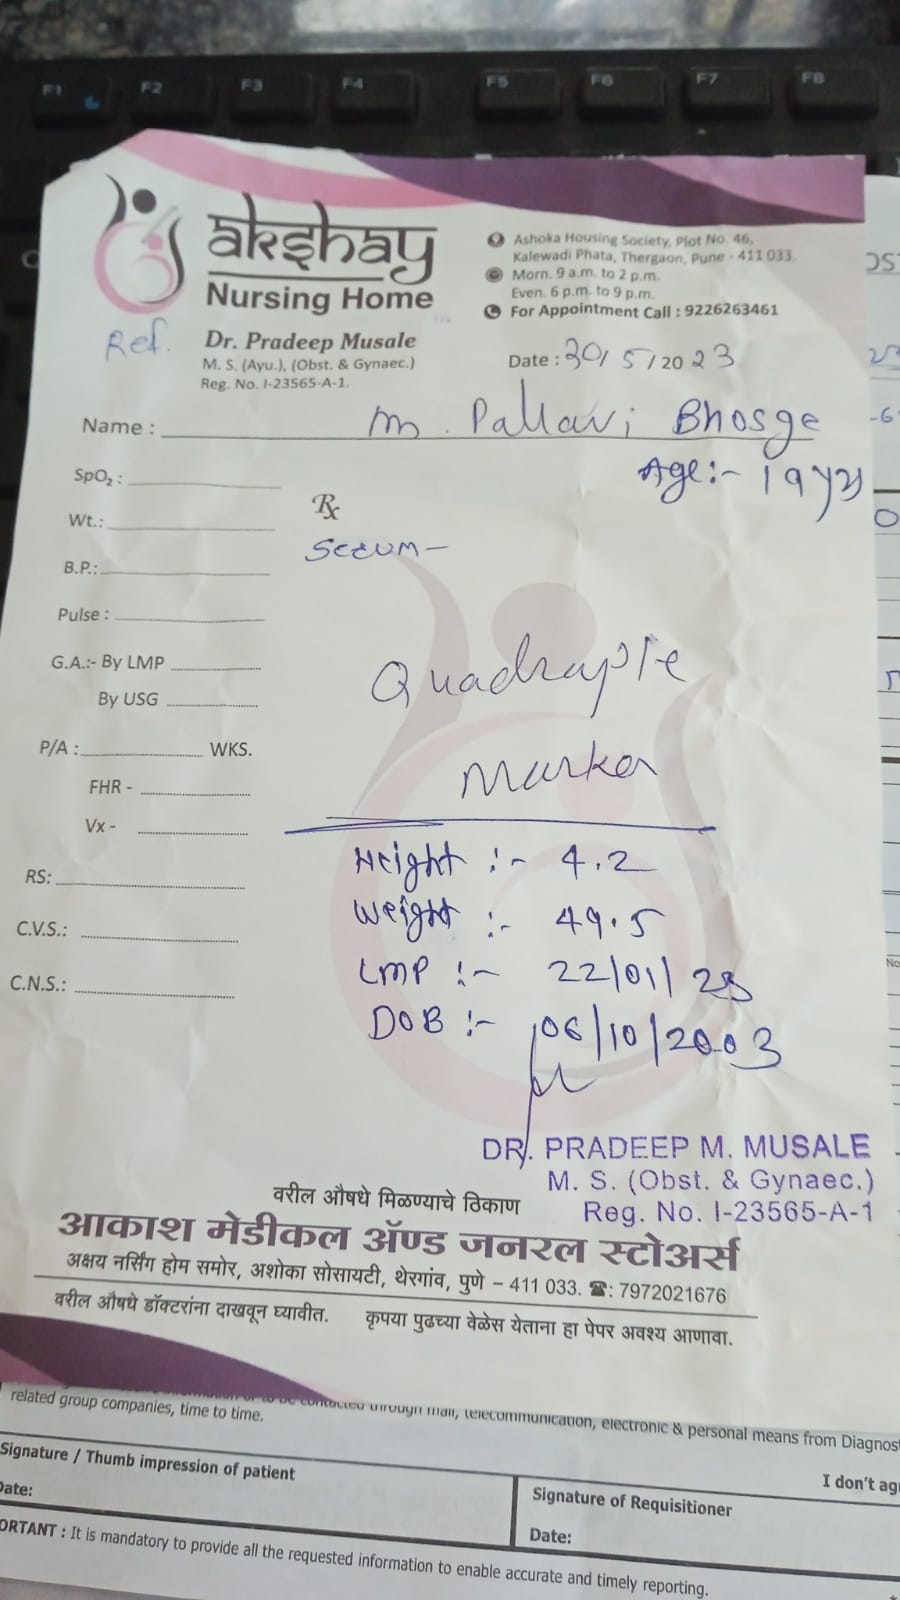 F1 F2 F3 F4 F5 F6 F7 F8
akshay
Nursing Home
Ashoka Housing Society, Plot No. 46,
Kalewadi Phata, Thergaon, Pune - 411 033.
Morn. 9 a.m. to 2 p.m.
Even. 6 p.m. to 9 p.m.
For Appointment Call : 9226263461
Ref.
Dr. Pradeep Musale
M. S. (Ayu.), (Obst. & Gynaec.)
Reg. No. I-23565-A-1.
Date : 30/5/2023
Name : m. Pallavi Bhosge
Age:- 19 yrs
SpO₂ :
Rx
Wt.:
Serum-
B.P.:
Pulse :
G.A.:- By LMP
By USG
Quadraple
P/A : WKS.
Marker
FHR -
Vx -
Height :- 4.2
RS:
Weight :- 49.5
C.V.S.:
LMP :- 22/01/23
C.N.S.:
DOB :- 06/10/2003
DR. PRADEEP M. MUSALE
M. S. (Obst. & Gynaec.)
Reg. No. I-23565-A-1
वरील औषधे मिळण्याचे ठिकाण
आकाश मेडीकल ॲण्ड जनरल स्टोअर्स
अक्षय नर्सिंग होम समोर, अशोका सोसायटी, थेरगांव, पुणे – 411 033. ☎: 7972021676
वरील औषधे डॉक्टरांना दाखवून घ्यावीत. कृपया पुढच्या वेळेस येताना हा पेपर अवश्य आणावा.
contacted through mail, telecommunication, electronic & personal means from Diagnos
related group companies, time to time.
I don't ag
Signature / Thumb impression of patient
Date:
Signature of Requisitioner
Date:
ORTANT : It is mandatory to provide all the requested information to enable accurate and timely reporting.